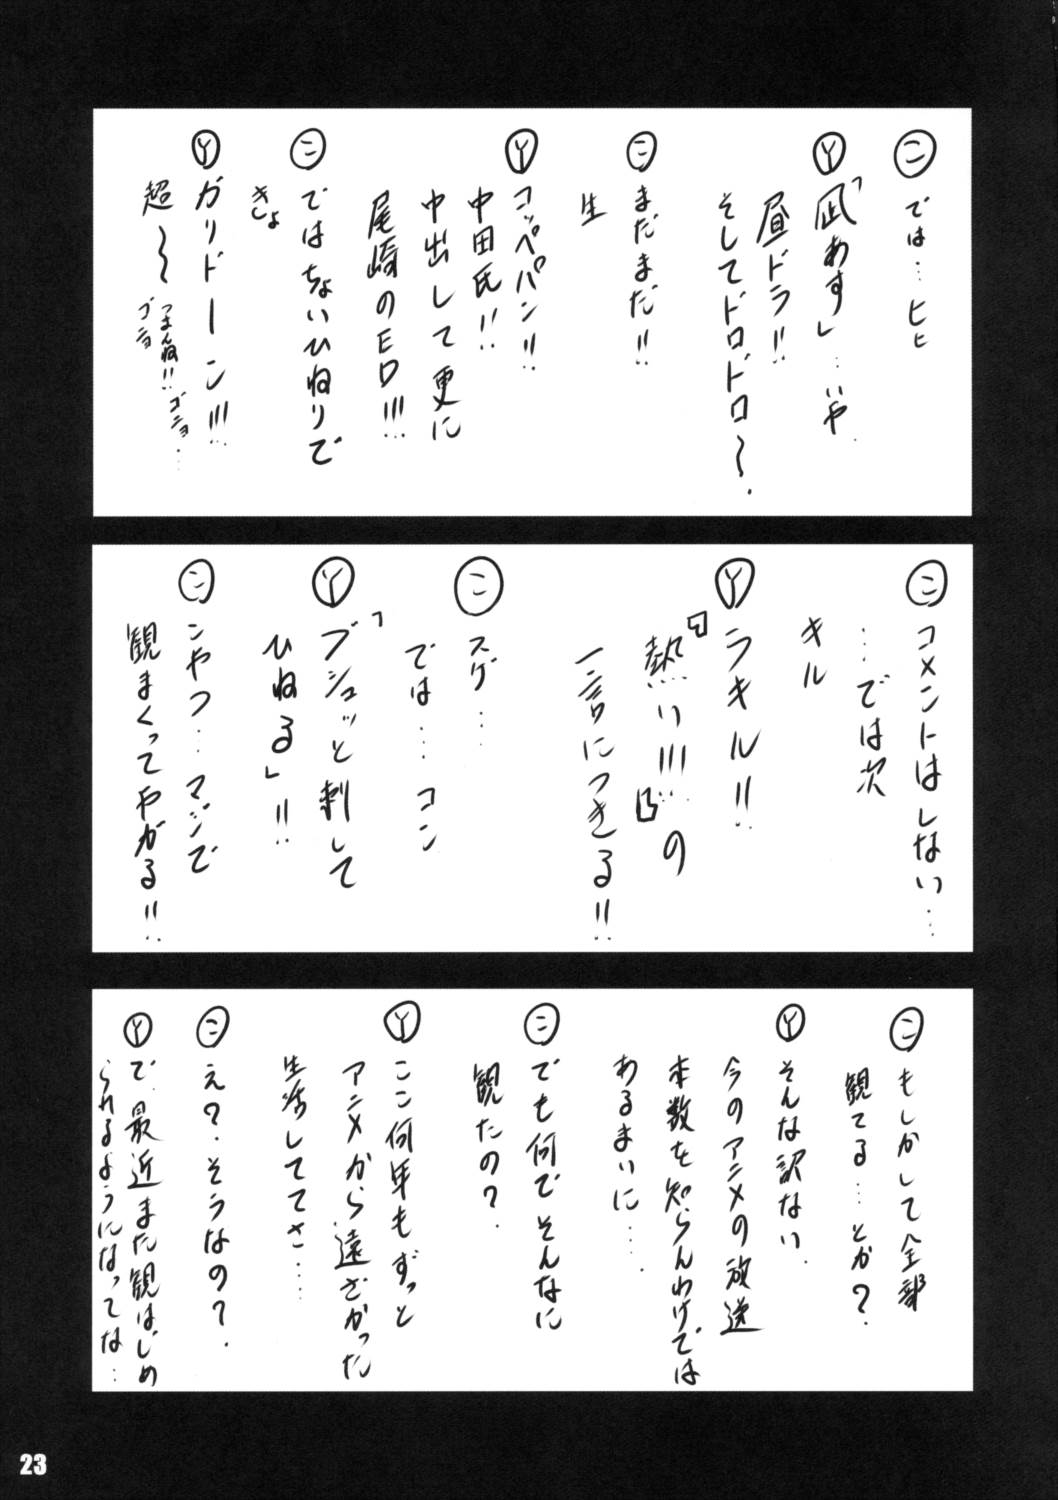 ㋙では…ヒヒ
Ⓨ「凪あす」…いや
昼ドラ!!
そしてドロドロ〜.
㋥まだまだ!!
生
Ⓨコッペパン!!
中田氏!!
中出して更に
尾崎のED!!!
㋥ではちょいひねりで
きしょ
Ⓨガリドーン!!!
超〜
つまんね!!
ゴニョ
ゴニョ…
㋥コメントはしない…
…では次
キル
Ⓨラキル!!
『熱い!!!』の
一言につきる!!
㋙スゲ…
では…コン
Ⓨ「ブシュッと刺して
ひねる」!!
㋥こやつ…マジで
観まくってやがる!!
㋥もしかして全部
観てる…とか?
Ⓨそんな訳ない.
今のアニメの放送
本数を知らんわけでは
あるまいに…
㋥でも何でそんなに
観たの?
Ⓨここ何年もずっと
アニメから遠ざかった
生活しててさ…
㋙え?そうなの?
Ⓨで、最近また観はじめ
られるようになってな…
23